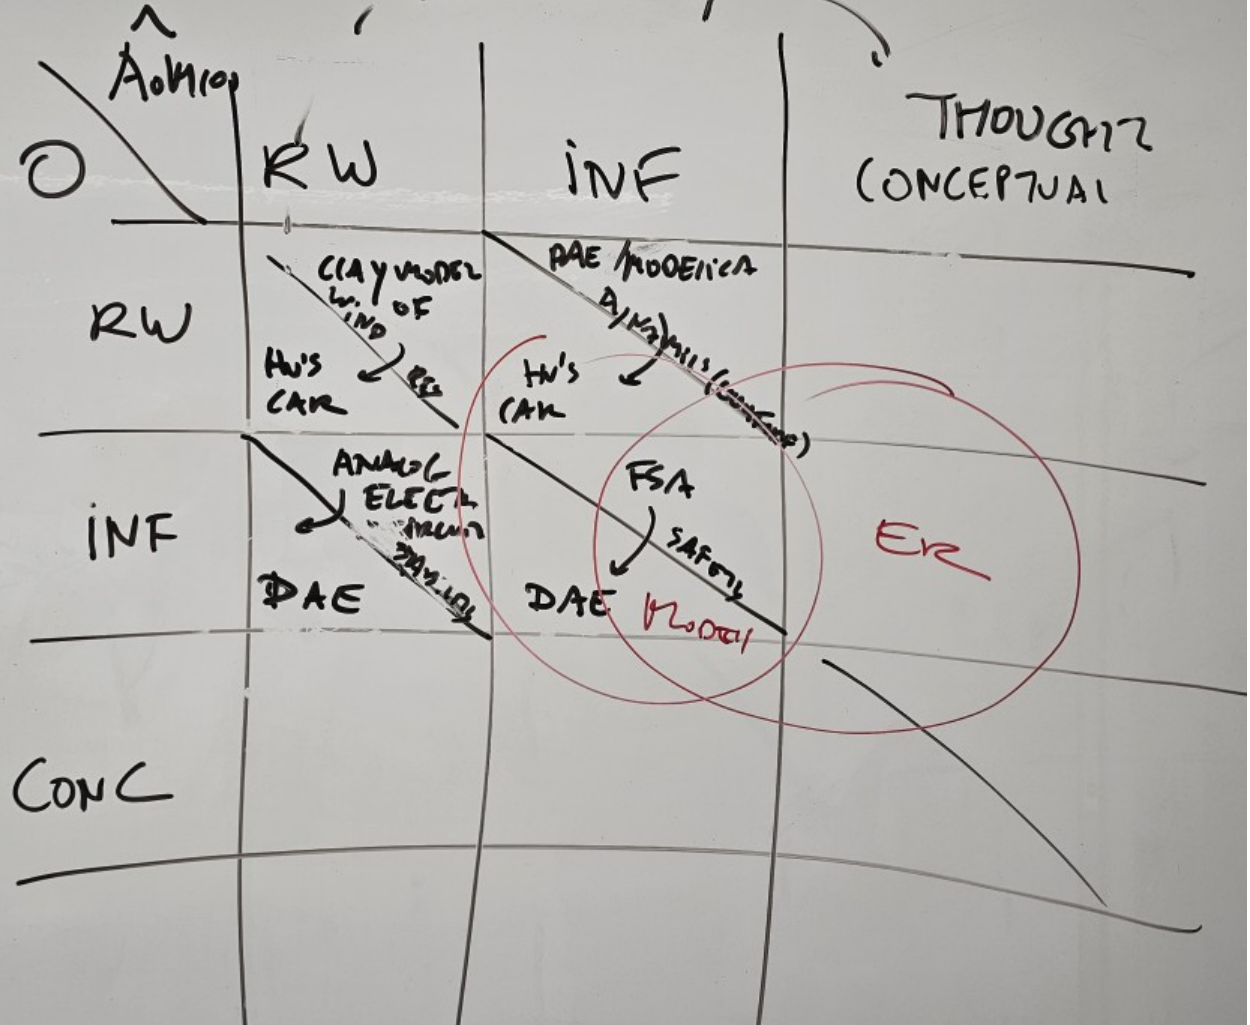 O
RW
INF
THOUGHT
CONCEPTUAL
RW
CLAY MODEL
OF
HV'S
CAR
DAE / MODELICA
HV'S
CAR
INF
ANALOG
DAE
FSA
SAFETY
DAE
MODEL
ER
CONC